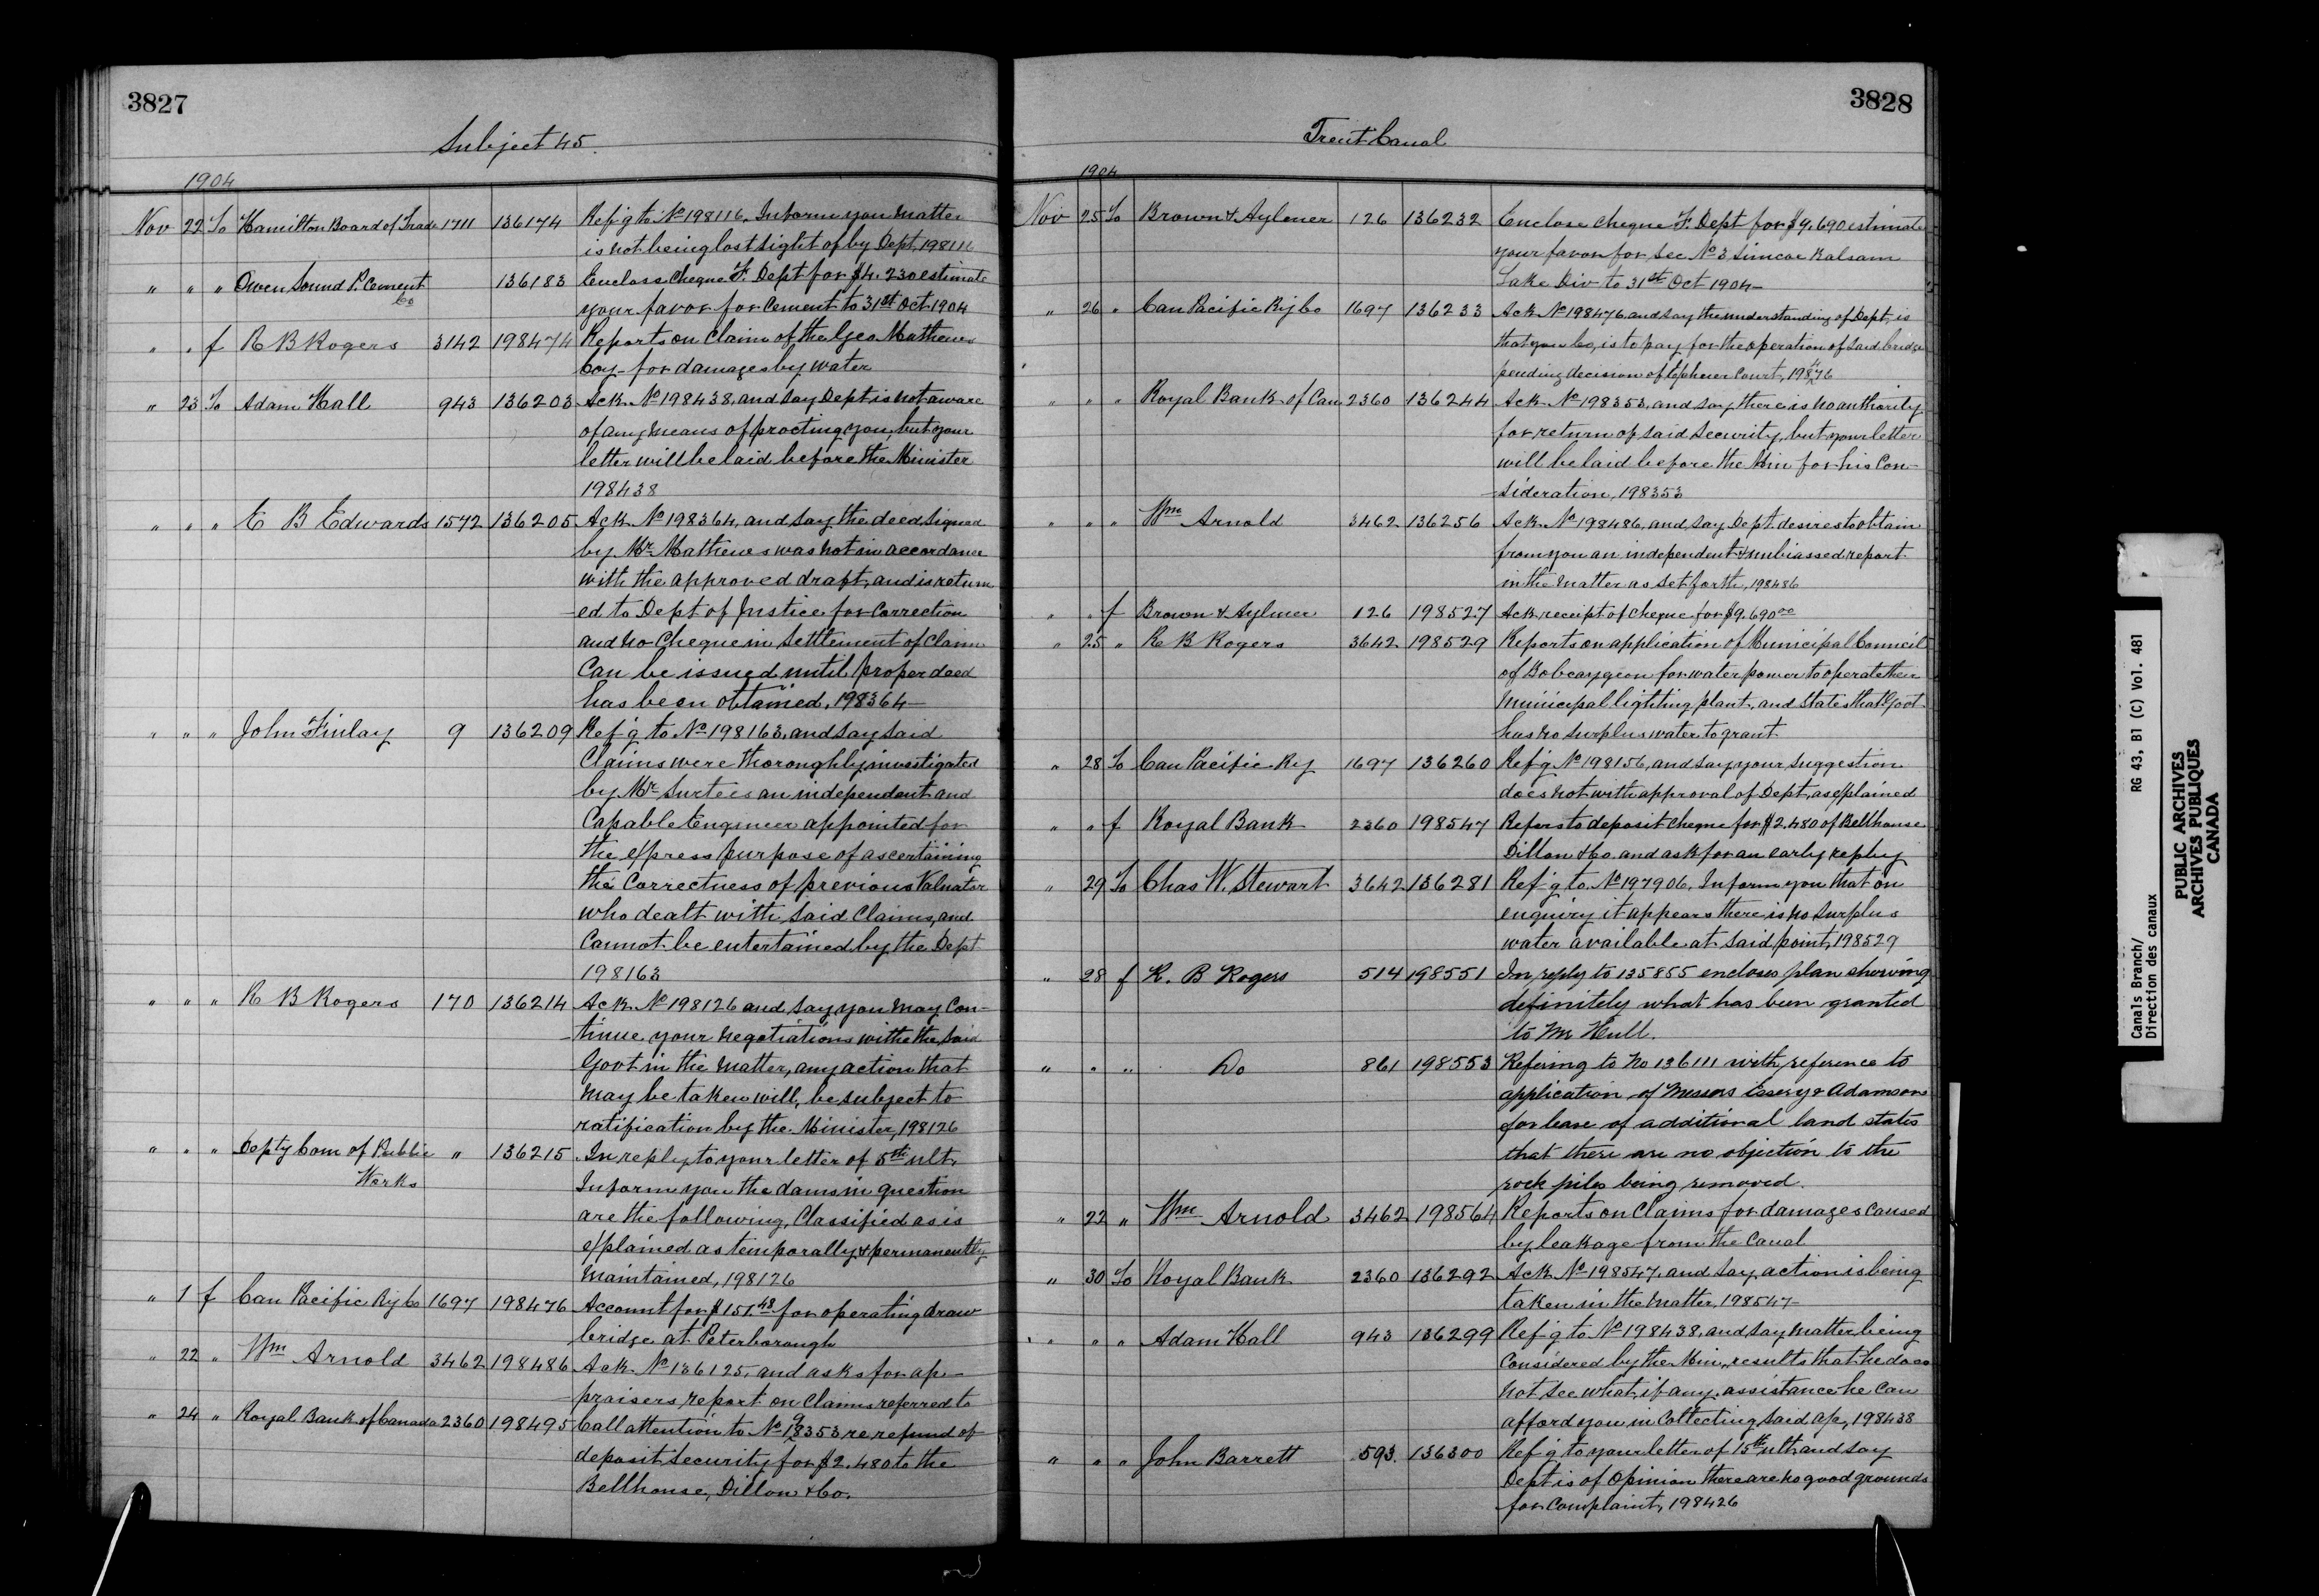 3827
Subject 45.
1904
Nov 22 To Hamilton Board of Trade 1711 136174 Ref'g to No 198116, Inform you matter
is not being lost sight of by Dept, 198116
" " " Owen Sound P. Cement Co 136183 Enclose Cheque F. Dept for $4.230 estimate
your favor for Cement to 31st Oct 1904
" " f R B Rogers 3142 198474 Reports on Claim of the Geo Mathews
Coy - for damages by water
" 23 To Adam Hall 943 136203 Ack No 198438, and say Dept is not aware
of any means of procting you, but your
letter will be laid before the Minister
198438
" " " E B Edwards 1572 136205 Ack No 198364, and say the deed signed
by Mr Mathews was not in accordance
with the approved draft, and is return
-ed to Dept of Justice for Correction
and no Cheque in Settlement of Claim
Can be issued until proper deed
has been obtained, 198364 -
" " " John Finlay 9 136209 Ref'g to No 198163, and say said
Claims were thoroughly investigated
by Mr Surtees an independent and
Capable Engineer appointed for
the express purpose of ascertaining
the Correctness of previous Valuator
who dealt with said Claims, and
Cannot be entertained by the Dept
198163
" " " R B Rogers 170 136214 Ack No 198126 and say you may Con-
-tinue your negotiations withe the said
Govt in the matter, any action that
may be taken will, be subject to
ratification by the Minister, 198126
" " " Depty Com of Public Works " 136215 In reply to your letter of 5th ult,
Inform you the dams in question
are the following, Classified as is
explained as temporally & permanently
Maintained, 198126
" 1 f Can Pacific Ry Co 1697 198476 Account for $157.48 for operating draw
bridge at Peterborough
" 22 " Wm Arnold 3462 198486 Ack No 136125, and asks for ap-
-praisers report on Claims referred to
" 24 " Royal Bank of Canada 2360 198495 Call attention to No 198353 re refund of
deposit Security for $2.480 to the
Bellhouse, Dillon & Co.
3828
Trent Canal
1904
Nov 25 To Brown & Aylmer 126 136232 Enclose Cheque F. Dept for $9.690 estimate
your favor for Sec No 3 Simcoe Balsam
Lake Div to 31st Oct 1904 -
" 26 " Can Pacific Ry Co 1697 136233 Ack No 198476 and say the understanding of Dept, is
that your Co, is to pay for the operation of said bridge
pending decision of Exphecer Court, 198476
" " " Royal Bank of Can 2360 136244 Ack No 198353, and say there is no authority
for return of said Security, but your letter
will be laid before the Min for his Con-
-sideration, 198353
" " " Wm Arnold 3462 136256 Ack No 198486, and say Dept. desires to obtain
from you an independent & unbiassed report
in the matter as set forth, 198486
" " f Brown & Aylmer 126 198527 Ack receipt of Cheque for $9.690 00
" 25 " R B Rogers 3642 198529 Reports on application of Municipal Council
of Bobcaygeon for water power to operate their
Municipal lighting plant, and states that Govt
has no surplus water to grant
" 28 To Can Pacific Ry 1697 136260 Ref'g No 198156, and say your suggestion
does not with approval of Dept, as explained
" " f Royal Bank 2360 198547 Refers to deposit cheque for $2.480 of Bellhouse
Dillon & Co. and ask for an early reply
" 29 To Chas W. Stewart 3642 136281 Ref'g to No 197906. Inform you that on
enquiry it appears there is no surplus
water available at said point, 198529
" 28 f R. B Rogers 514 198551 In reply to 135855 encloses plan showing
definitely what has been granted
to Mr Hull.
" " " Do 861 198553 Refering to No 136111 with reference to
application of Messrs Essery & Adamson
for lease of additional land states
that there are no objection to the
rock piles being removed.
" 22 " Wm Arnold 3462 198564 Reports on Claims for damages caused
by leakage from the Canal
" 30 To Royal Bank 2360 136292 Ack No 198547, and say action is being
taken in the matter, 198547 -
" " " Adam Hall 943 136299 Ref'g to No 198438, and say matter being
Considered by the Min, results that he does
not see what, if any, assistance he can
afford you in Collecting said ap, 198438
" " " John Barrett 593. 136300 Ref'g to your letter of 15th ult and say
Dept is of opinion there are no good grounds
for Complaint, 198426
Canals Branch/ RG 43, B1 (C) Vol. 481
Direction des canaux
PUBLIC ARCHIVES
ARCHIVES PUBLIQUES
CANADA